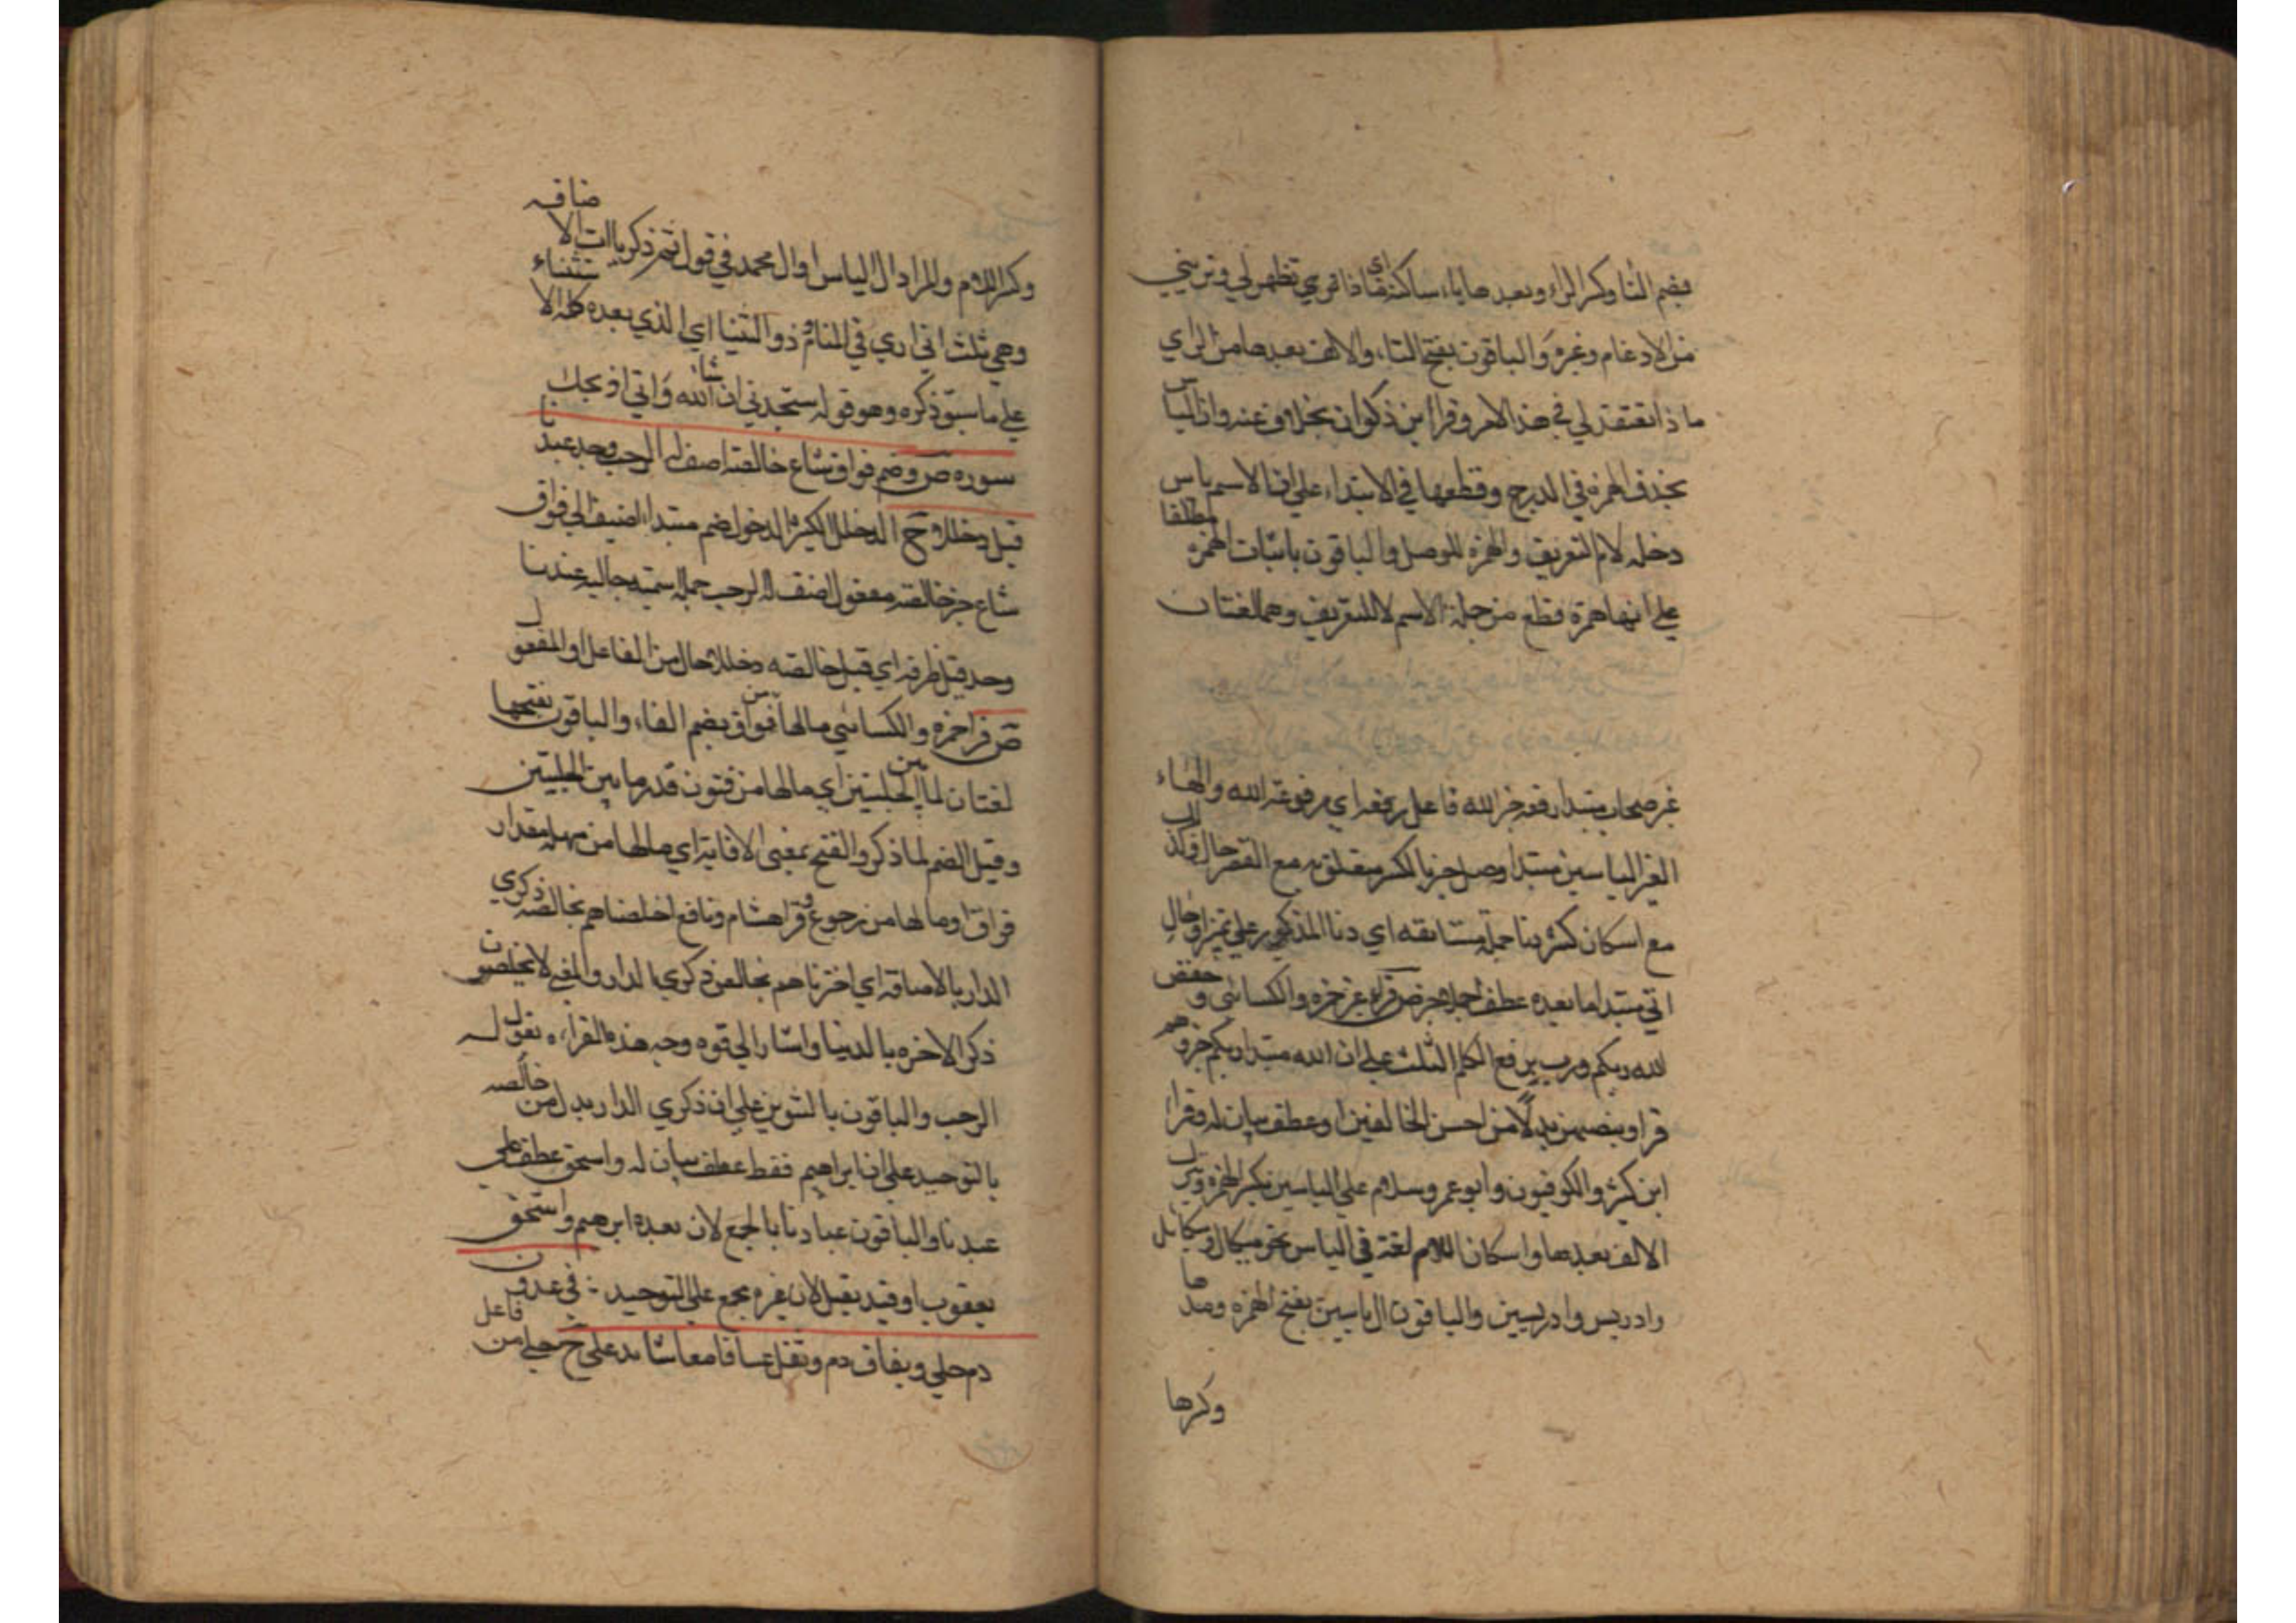 بضم التا وكسر الراء وبعدها ياء ساكنة اي ماذا تري تظهر لي وتريني
من الادغام وغيره والباقون بفتح التاء والالف بعدها من الراي
ماذا تعتقد لي في هذا الامر وقرأ ابن ذكوان بخلاف عنه وان الياس
بحذف الهمزة في الدرج وقطعها في الابتداء علي ان الاسم ياس
دخله لام التعريف والهمزة للوصل والباقون باثبات الهمزة مطلقا
علي انها همزة قطع من جملة الاسم لا للتعريف وهما لغتان
غير صحاب مبتدا رفعه خبر الله فاعل رفعه اي مرفوعه الله والهاء
الغير الياسين مبتدا وصل خبر بالكسر متعلق به مع القصر حال وكذا
مع اسكان كسر دنا جملة مستانفه اي دنا المذكور علي تميز او حال
اتي مبتدا ما بعده عطف جملا خبر ص قرأ غير حمزه والكسائي وحفص
الله ربكم ورب برفع الكلم الثلث علي ان الله مبتدا ربكم خبر وهم
قراو بنصبهن بدلا من احسن الخالقين او عطف بيان له وقرا
ابن كثير والكوفيون وابو عمرو سلام علي الياسين بكسر الهمزة وترك
الالف بعدها واسكان اللام لغة في الياس نحو ميكال وميكايل
وادريس وادريسين والباقون ال ياسين بفتح الهمزه ومدها
وكسرها
وكسر اللام والمراد ال الياس او ال محمد في قول ثم ذكر ياات الاضافه
وهي ثلث اني اري في المنام وذو الثنيا اي الذي بعده كلمة الاستثناء
علي ما سبق ذكره وهو قوله ستجدني ان شاء الله واني اذبحك
سوره ص وضم فواق شاع خالصة اضف له الرحب وحد عبدنا
قبل دخللا ح الدخلل الكثير الدخول ضم مبتدا اضيف الي فواق
شاع خبر خالصة مفعول اضف له الرحب جملة اسمية حاليه عبدنا
وحد قبل ظرفه اي قبل خالصه دخللا حال من الفاعل او المفعول
ص قرأ حمزه والكسائي مالها من فواق بضم الفاء والباقون بفتحها
لغتان لما بين الحلبتين اي مالها من فتون قدر ما بين الحلبتين
وقيل الضم لما ذكر والفتح بمعني الافاقة اي مالها من مهلة مقدار
فواق او مالها من رجوع وقرا هشام ونافع اخلصناهم بخالصة ذكري
الدار بالاضافه اي اخترناهم بخالص ذكري الدار والمعني لا يخلصون
ذكر الاخره بالدنيا واشار الي قوه وجه هذه القراءه بقوله له
الرحب والباقون بالتنوين علي ان ذكري الدار بدل من خالصه
بالتوحيد علي ان ابراهيم فقط عطف بيان له واسحق عطف علي
عبدنا والباقون عبادنا بالجمع لان بعده ابرهيم واسحق
يعقوب او قيد بقبل لان غيره مجمع علي التوحيد وفي يوعدون
دم حلي وبقاف دم وثقل غساقا معا شايد علي ح حلي من فاعل